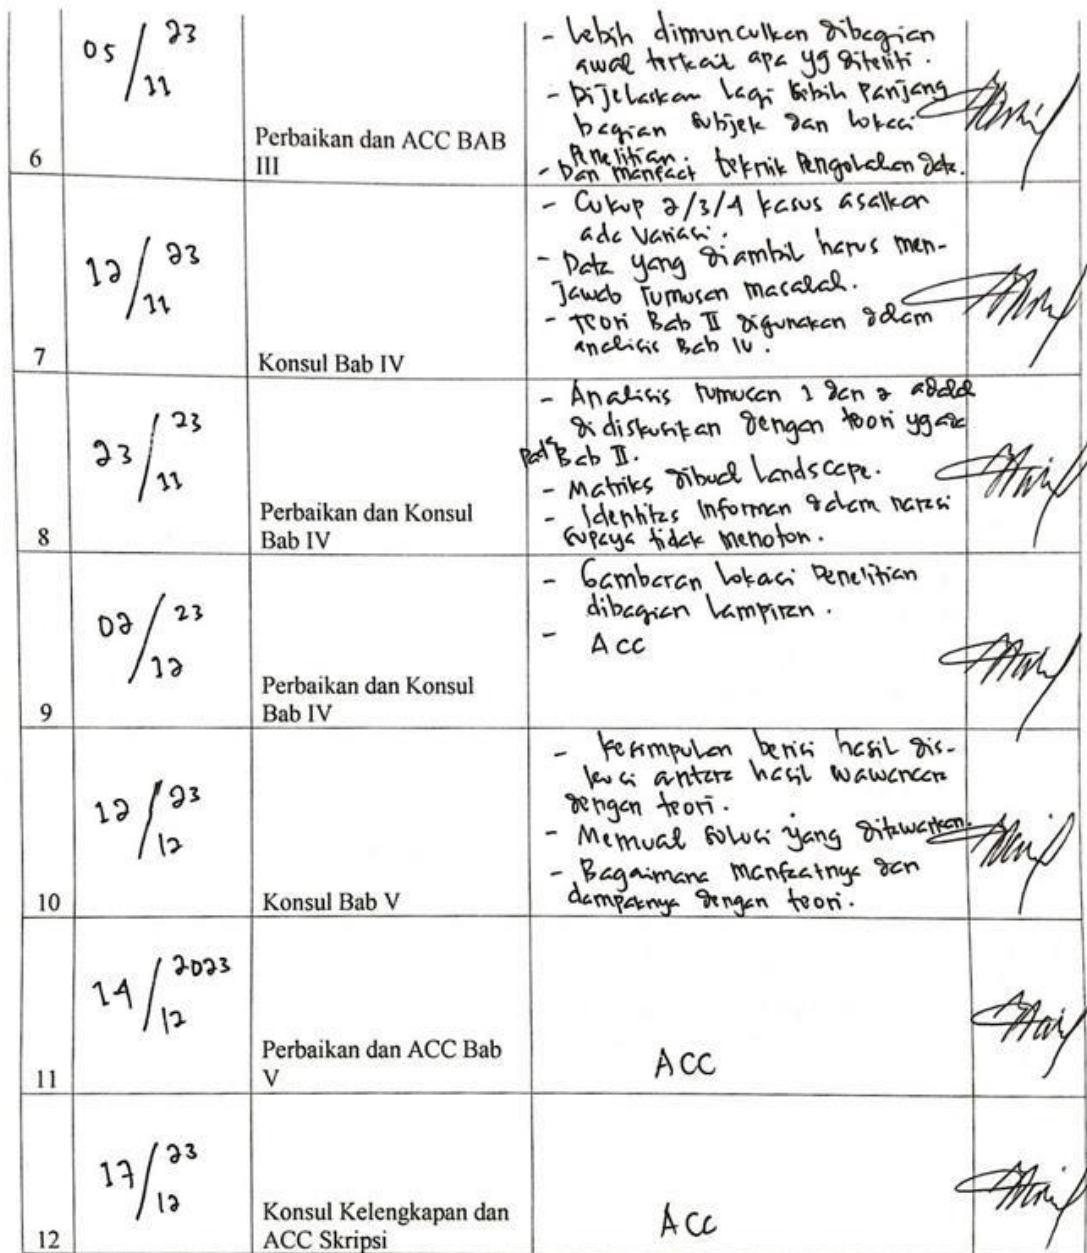 05 / 23
11
- Lebih dimunculkan dibagian
awal terkait apa yg diteliti.
- Dijelaskan lagi lebih panjang
bagian subjek dan lokasi
Penelitian.
- Dan manfaat teknik Pengolahan data.
Perbaikan dan ACC BAB
III
6
12 / 23
11
- Cukup 2/3/4 kasus asalkan
ada variasi.
- Data yang diambil harus men-
jawab rumusan masalah.
- Teori Bab II digunakan dalam
analisis Bab IV.
7
Konsul Bab IV
23 / 23
11
- Analisis rumusan 1 dan 2
didiskusikan dengan teori yg ada
pada Bab II.
- Matriks dibuat Landscape.
- Identitas Informan dalam narasi
supaya tidak menoton.
Perbaikan dan Konsul
Bab IV
8
02 / 23
12
- Gambaran lokasi Penelitian
dibagian Lampiran.
- Acc
Perbaikan dan Konsul
Bab IV
9
12 / 23
12
- Kesimpulan berisi hasil dis-
kusi antara hasil wawancara
dengan teori.
- Memuat solusi yang ditawarkan.
- Bagaimana manfaatnya dan
dampaknya dengan teori.
10
Konsul Bab V
14 / 2023
12
Perbaikan dan ACC Bab
V
ACC
11
17 / 23
12
Konsul Kelengkapan dan
ACC Skripsi
ACC
12